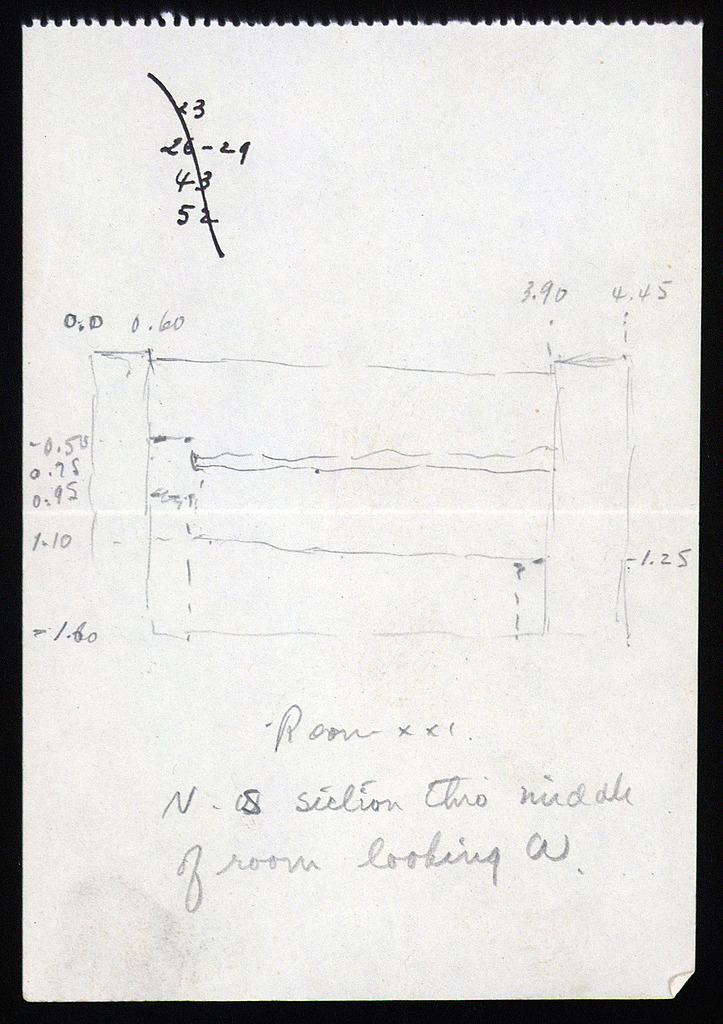 x3
26-29
43
52
3.90 4.45
0.0 0.60
-0.50
0.75
0.95
1.10
-1.25
-1.60
Room xxi.
N-S section thro middle
of room looking W.